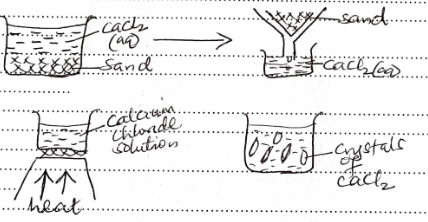 CaCl2
(aq)
sand
sand
CaCl2(aq)
Calcium
chloride
solution
heat
crystals
of
CaCl2